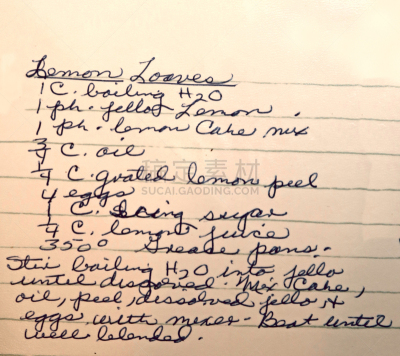 Lemon Loaves
1 C. boiling H2O
1 pk. jello Lemon.
1 pk. lemon Cake mix
3/4 C. oil
1/4 C. grated lemon peel
4 eggs
1 C. Icing sugar
1/4 C. lemon juice
350° Grease pans.
Stir boiling H2O into jello
until dissolved. Mix Cake,
oil, peel, dissolved jello &
eggs with mixer. Beat until
well blended.
稿定素材
SUCAI.GAODING.COM